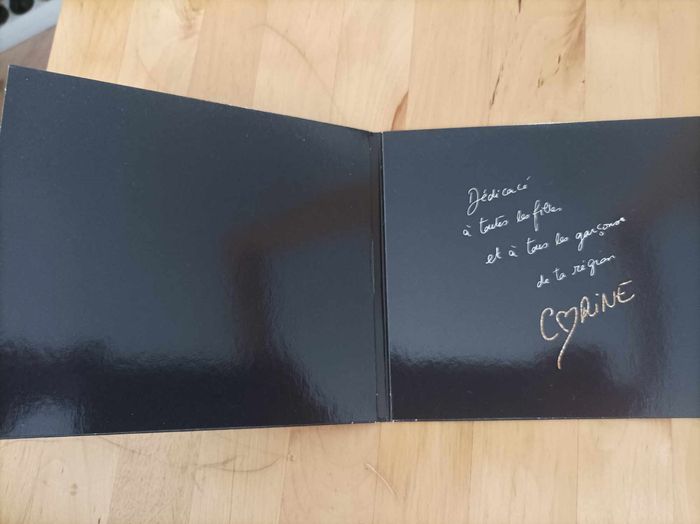 Dédicacé
à toutes les filles
et à tous les garçons
de ta région
CORINE